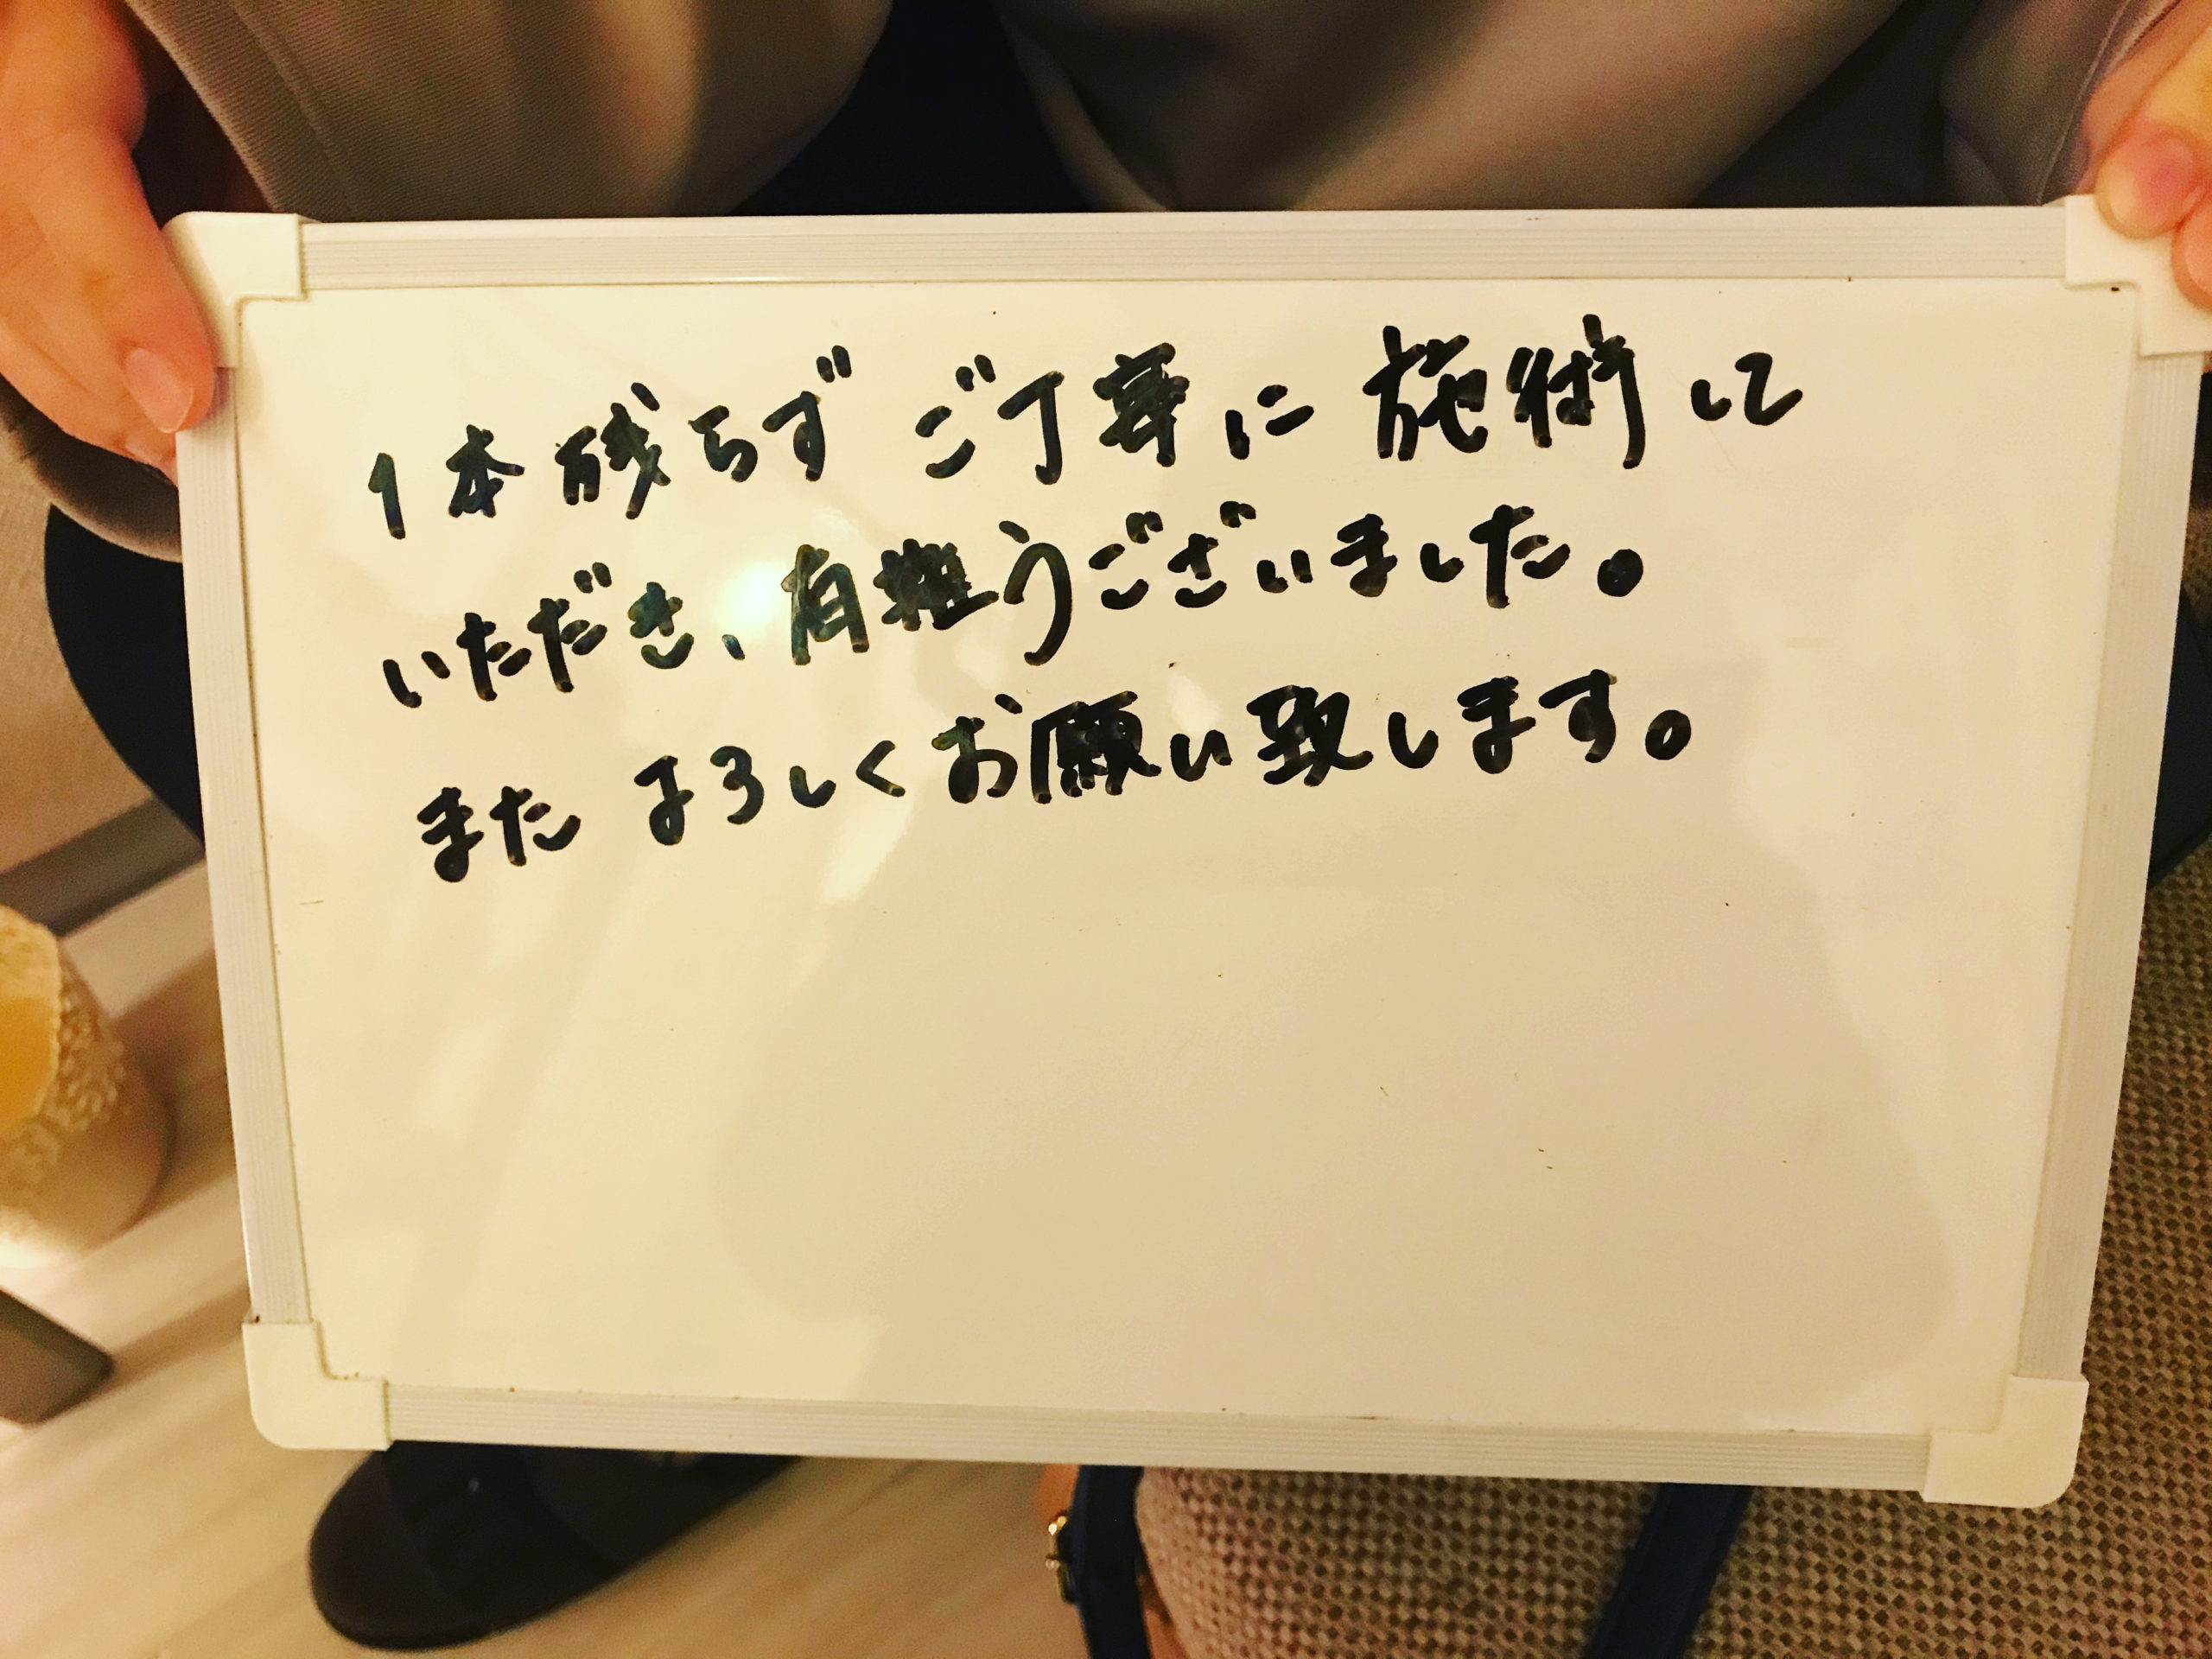 1本残らずご丁寧に施術して
いただき、有難うございました。
またよろしくお願い致します。